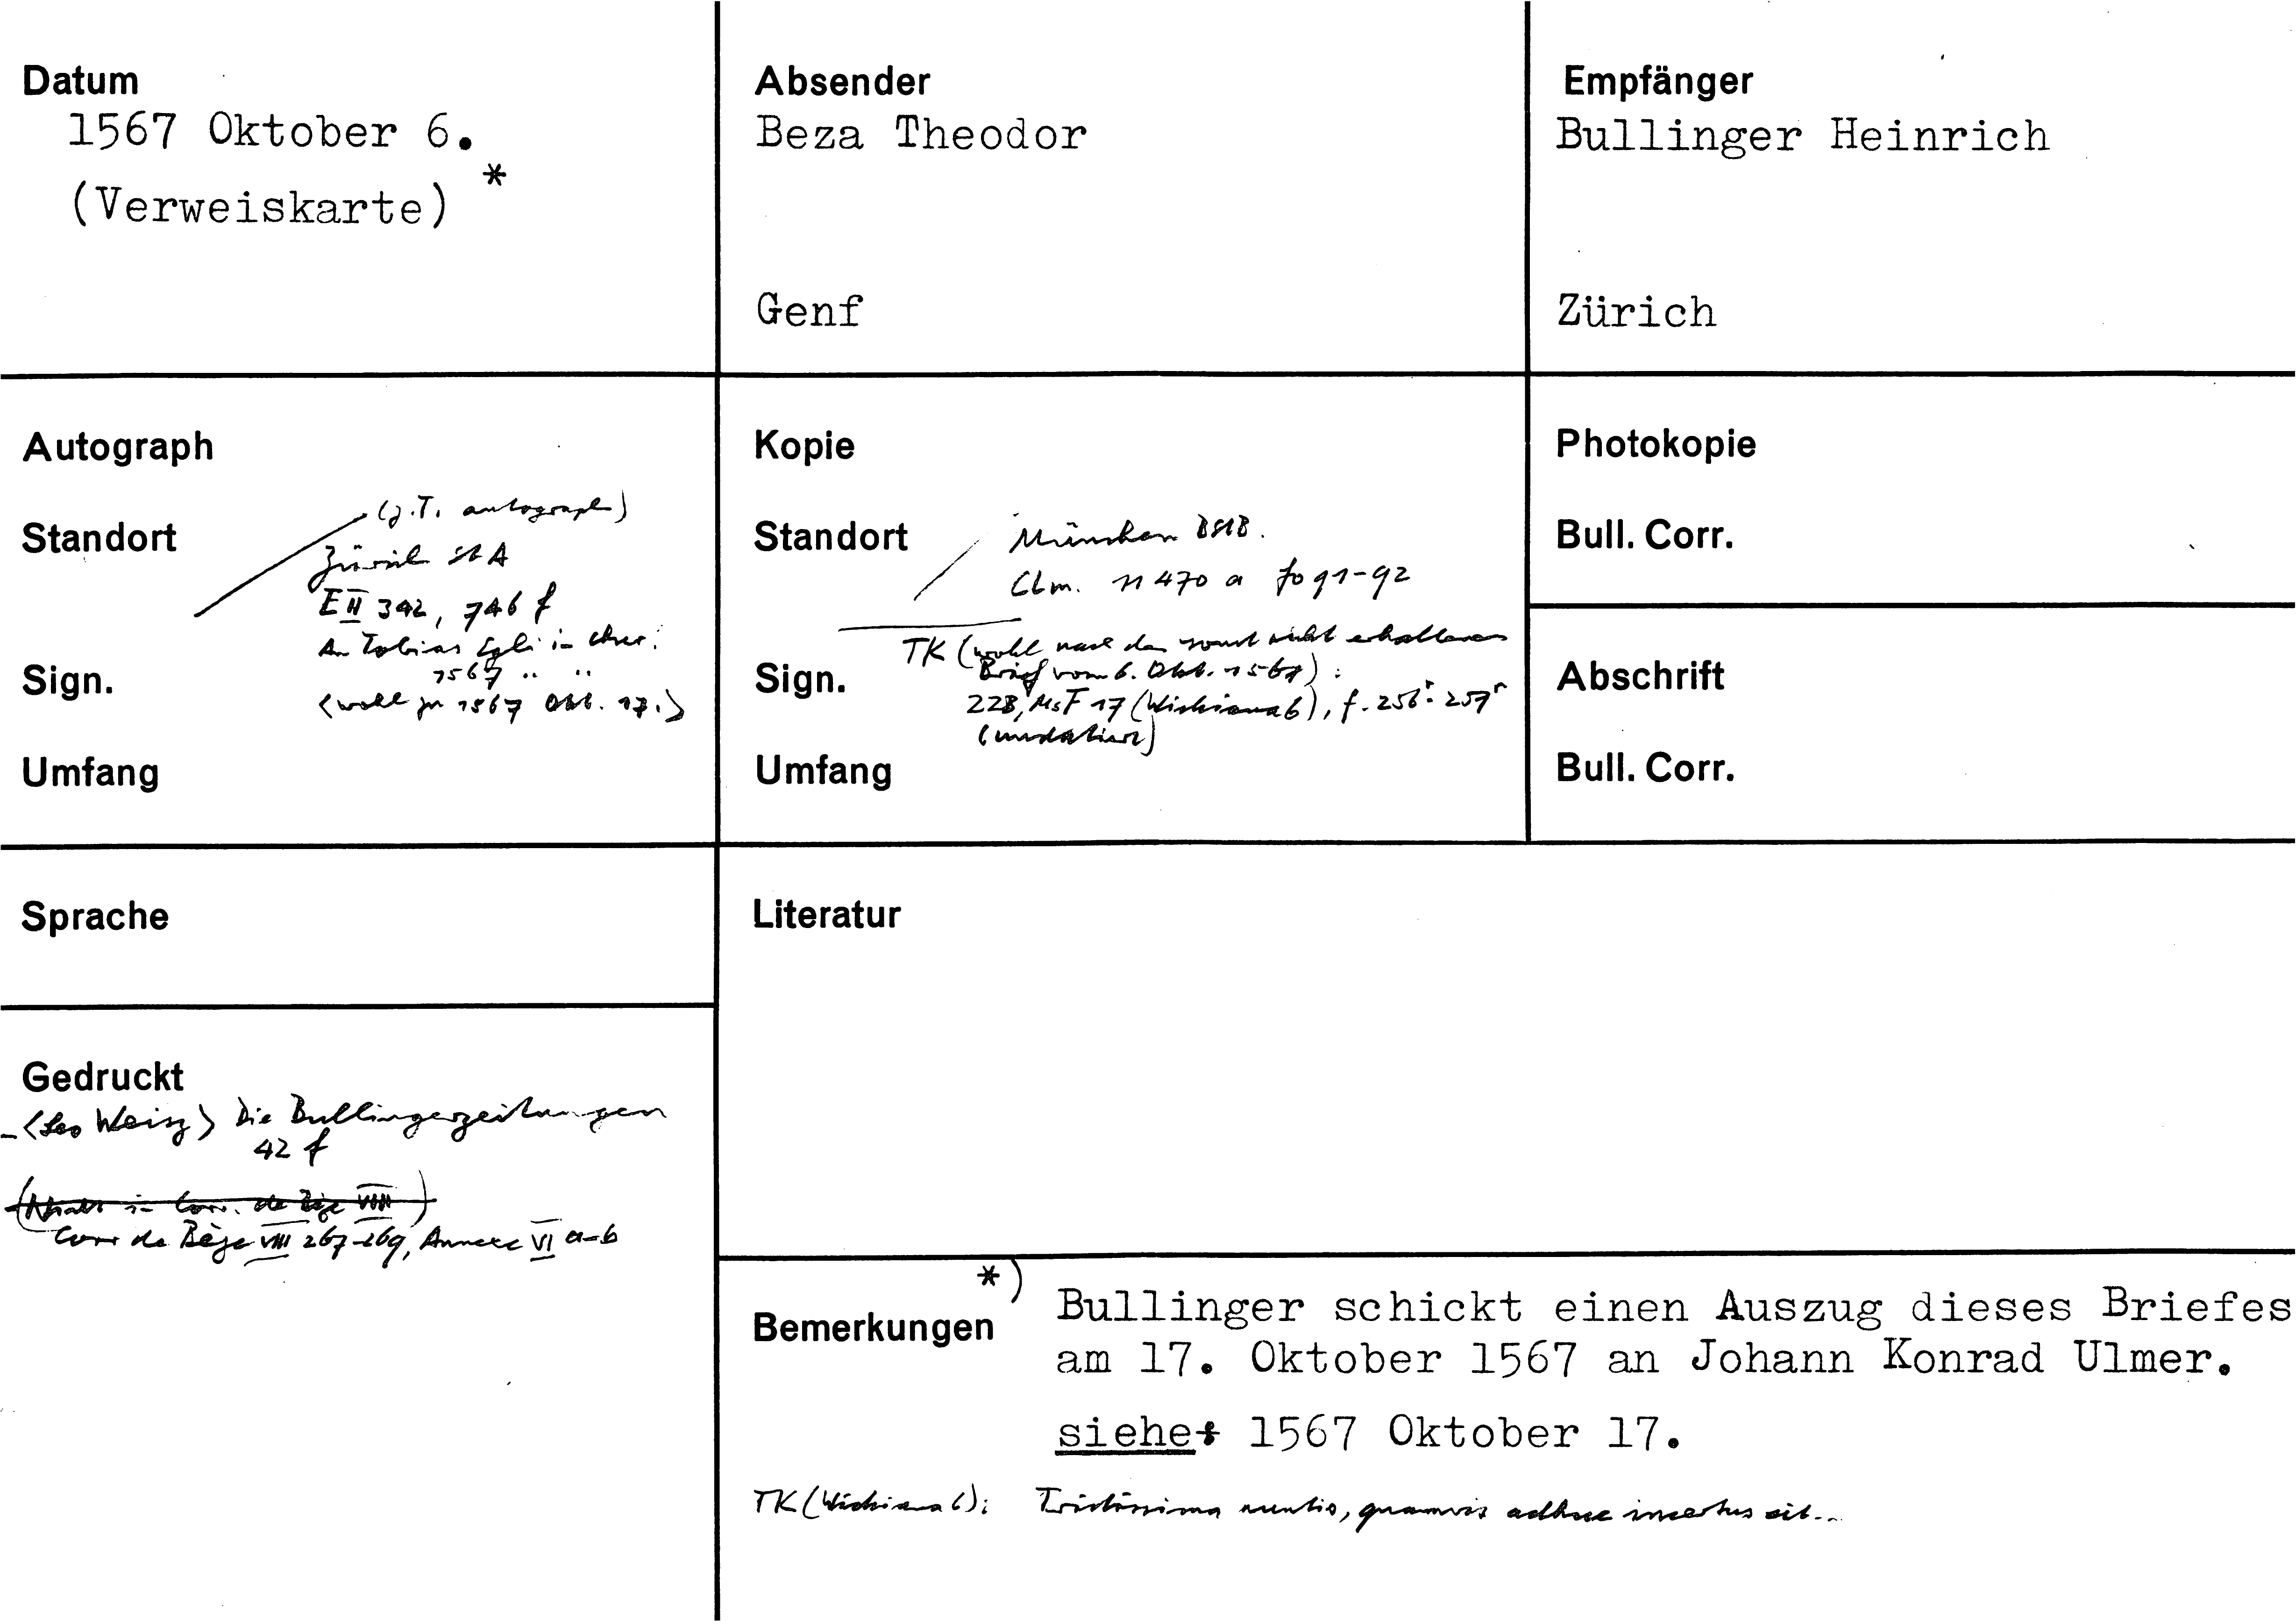 Datum
1567 Oktober 6.
(Verweiskarte) *
Absender
Beza Theodor
Genf
Empfänger
Bullinger Heinrich
Zürich
Autograph
Standort
(z.T. autograph)
Zürich StA
E II 342, 746 f
An Tobias Egli in Chur:
1567 " "
Sign.
<wohl zu 1567 Okt. 17.>
Umfang
Kopie
Standort
München BStB.
Clm. 11470 a fo 91-92
TK (wohl nach dem sonst nicht erhaltenen
Brief vom 6. Okt. 1567):
Sign.
ZZB, Ms F 17 (Wickiana 6), f. 256r-257r
(undatiert)
Umfang
Photokopie
Bull. Corr.
Abschrift
Bull. Corr.
Sprache
Gedruckt
- <Leo Weisz> Die Bullingerzeitungen
42 f
in Corr. de Bèze VIII)
Corr de Bèze VIII 267-269, Annexe VI a-b
Literatur
Bemerkungen
*)
Bullinger schickt einen Auszug dieses Briefes
am 17. Oktober 1567 an Johann Konrad Ulmer.
siehe: 1567 Oktober 17.
TK (Wickiana 6): Tristissima nuntio, quamvis adhuc incertus sit...